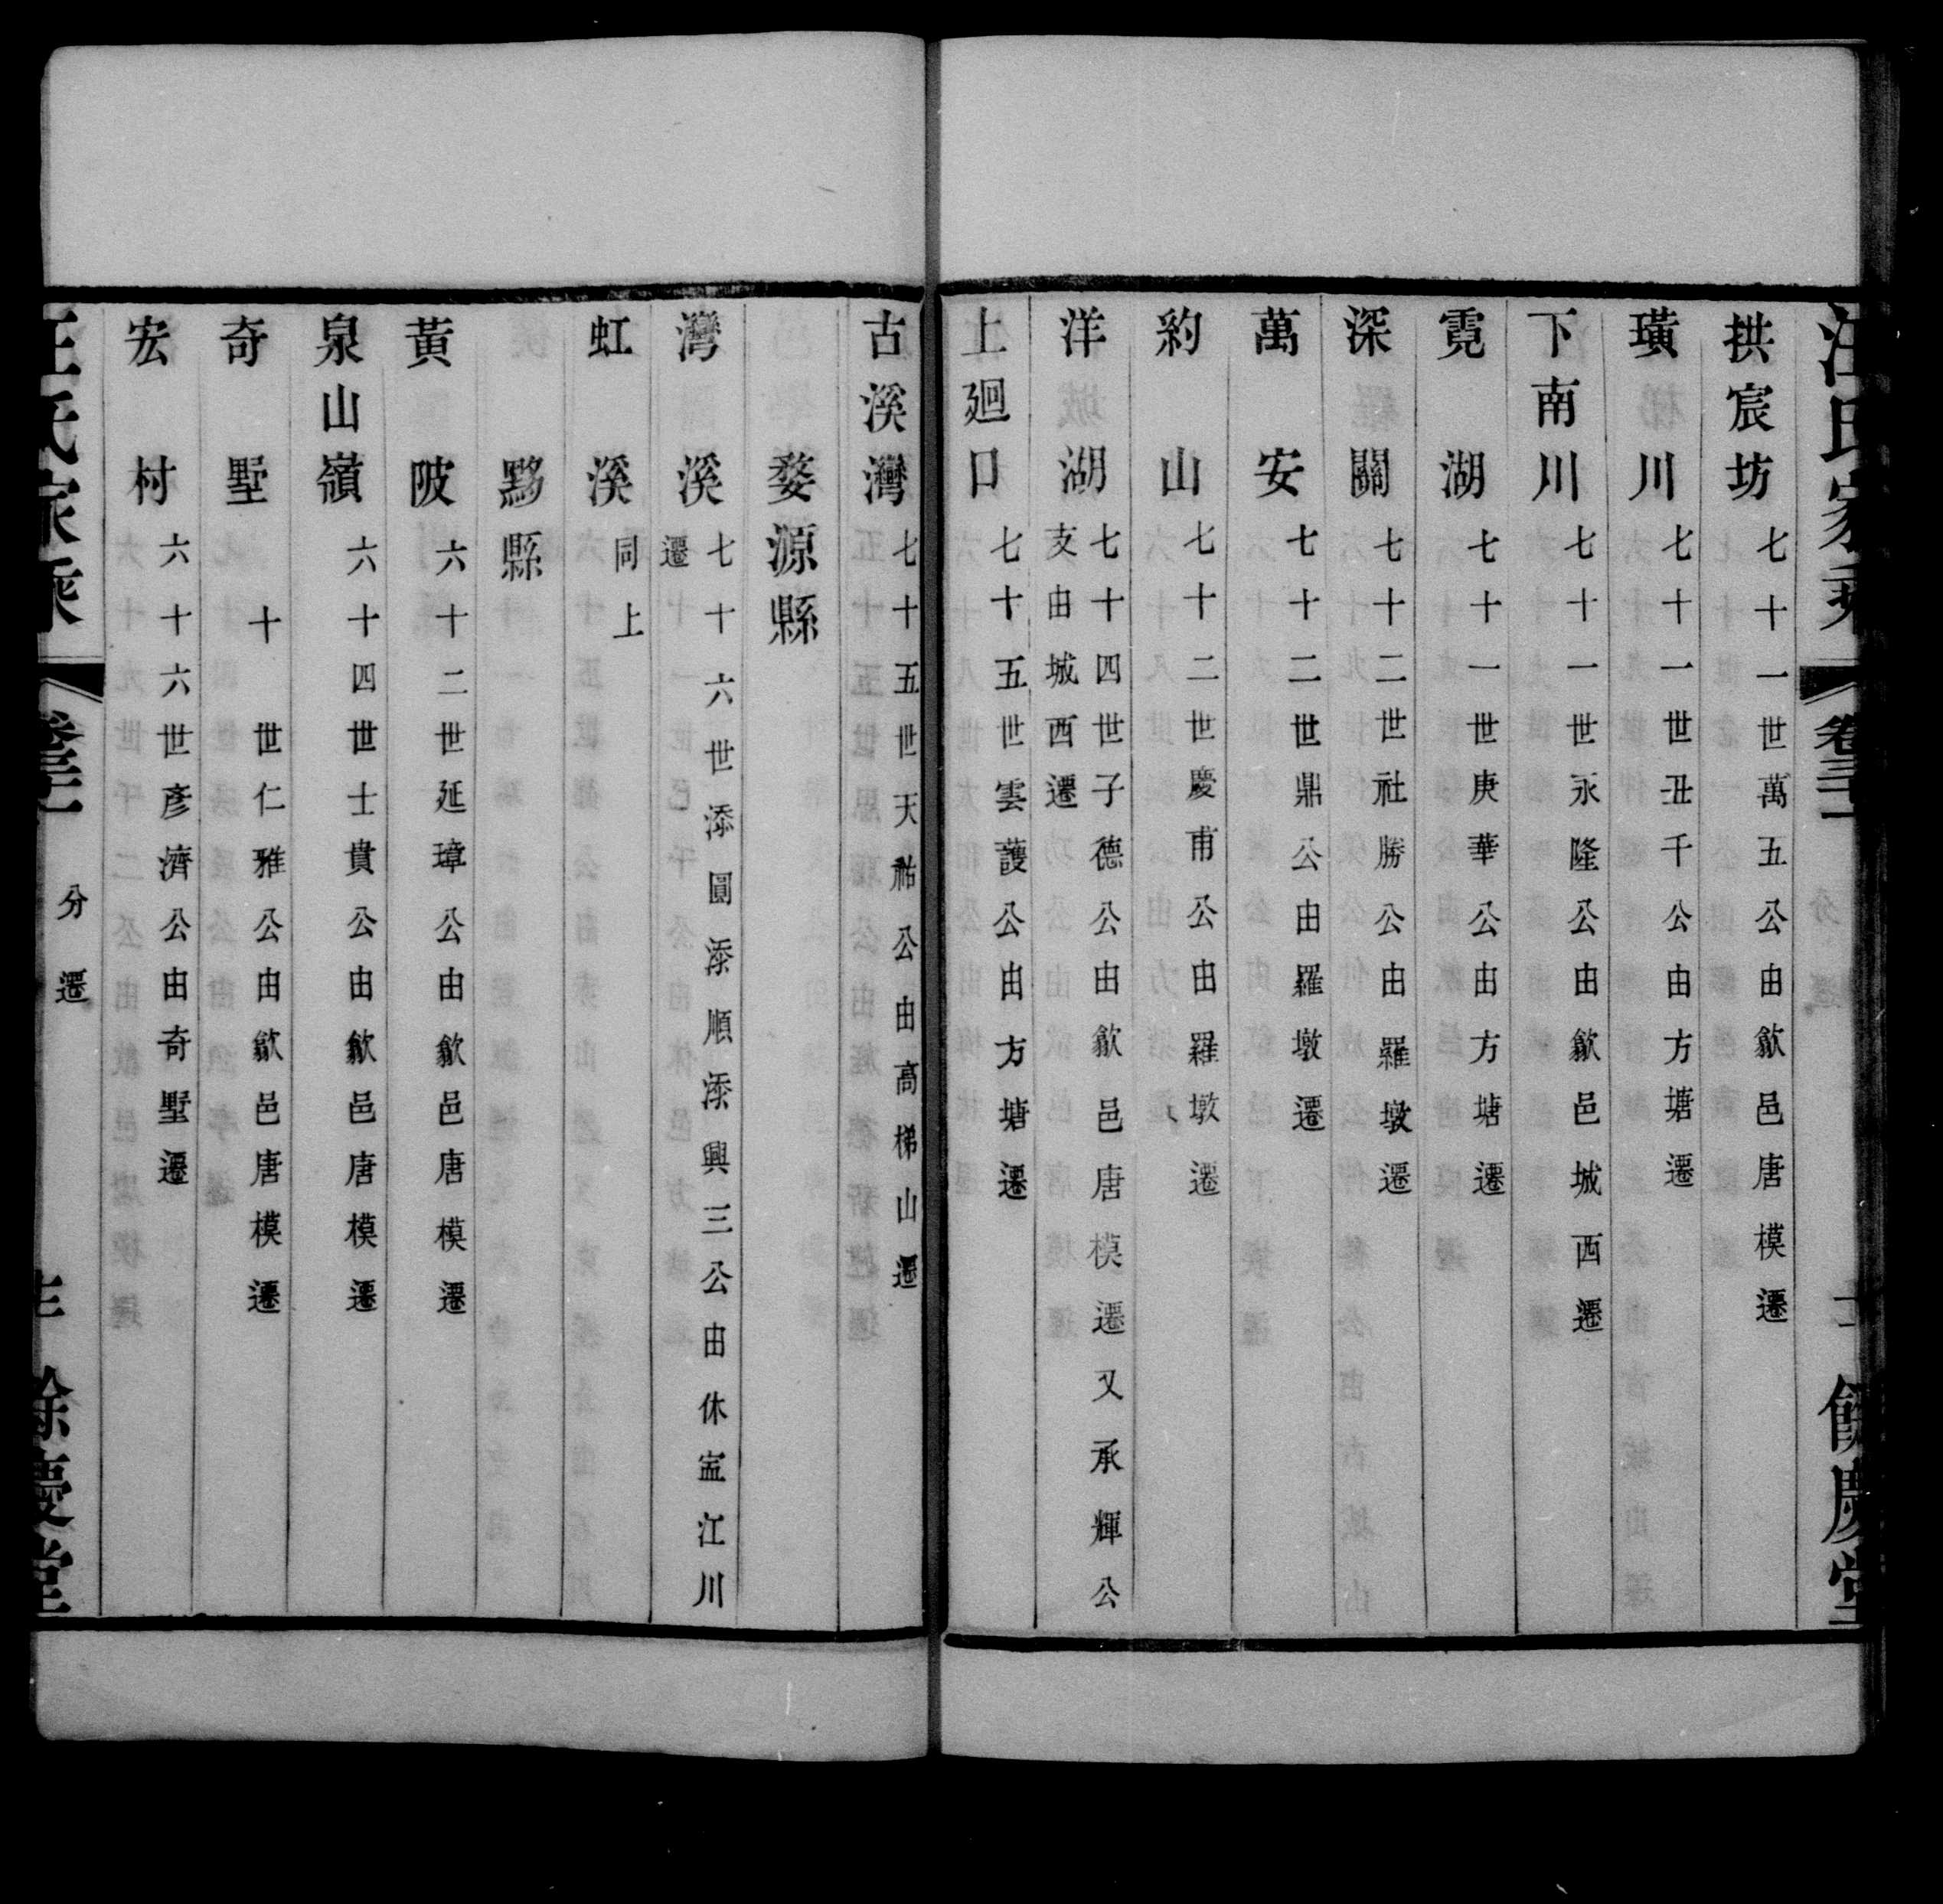 汪氏家乘 卷三十一 餘慶堂
拱宸坊 七十一世萬五公由歙邑唐模遷
璜川 七十一世丑千公由方塘遷
下南川 七十一世永隆公由歙邑城西遷
霓湖 七十一世庚華公由方塘遷
深關 七十二世社勝公由羅墩遷
萬安 七十二世鼎公由羅墩遷
約山 七十二世慶甫公由羅墩遷
洋湖 七十四世子德公由歙邑唐模遷又承輝公
支由城西遷
上廻口 七十五世雲護公由方塘遷
古溪灣 七十五世天祐公由高梯山遷
婺源縣
灣溪 七十六世添圓添順添興三公由休寍江川
遷
虹溪 同上
黟縣
黃陂 六十二世延璋公由歙邑唐模遷
泉山嶺 六十四世士貴公由歙邑唐模遷
奇墅 十世仁雅公由歙邑唐模遷
宏村 六十六世彥濟公由奇墅遷
汪氏家乘 分遷 餘慶堂